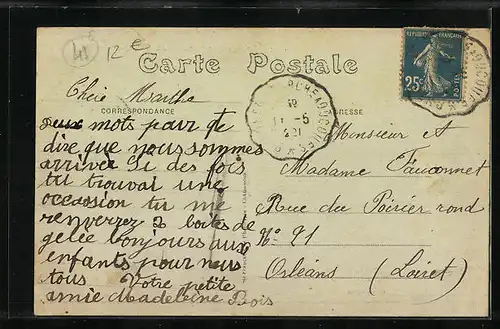 41
12 €
Carte Postale
REPUBLIQUE FRANÇAISE
25c POSTES
Chere Marthe
CORRESPONDANCE
19
11-5
21
deux mots pour te
dire que nous sommes
arriver Si des fois
tu trouvai une
occassion tu me
renverrez 2 boites de
gelée bonjours aux
enfants pour nous
tous Votre petite
amie Madeleine Bois
Monsieur et
Madame Fauconnet
Rue du Poirier rond
No 91
Orléans (Loiret)